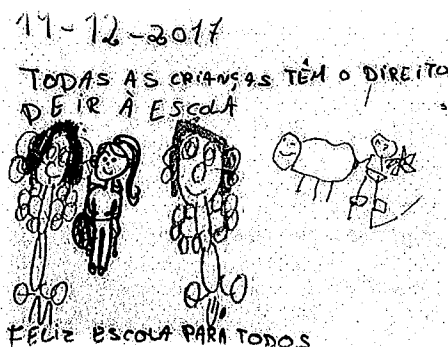 11-12-2017
TODAS AS CRIANÇAS TÊM O DIREITO
DE IR À ESCOLA
FELIZ ESCOLA PARA TODOS